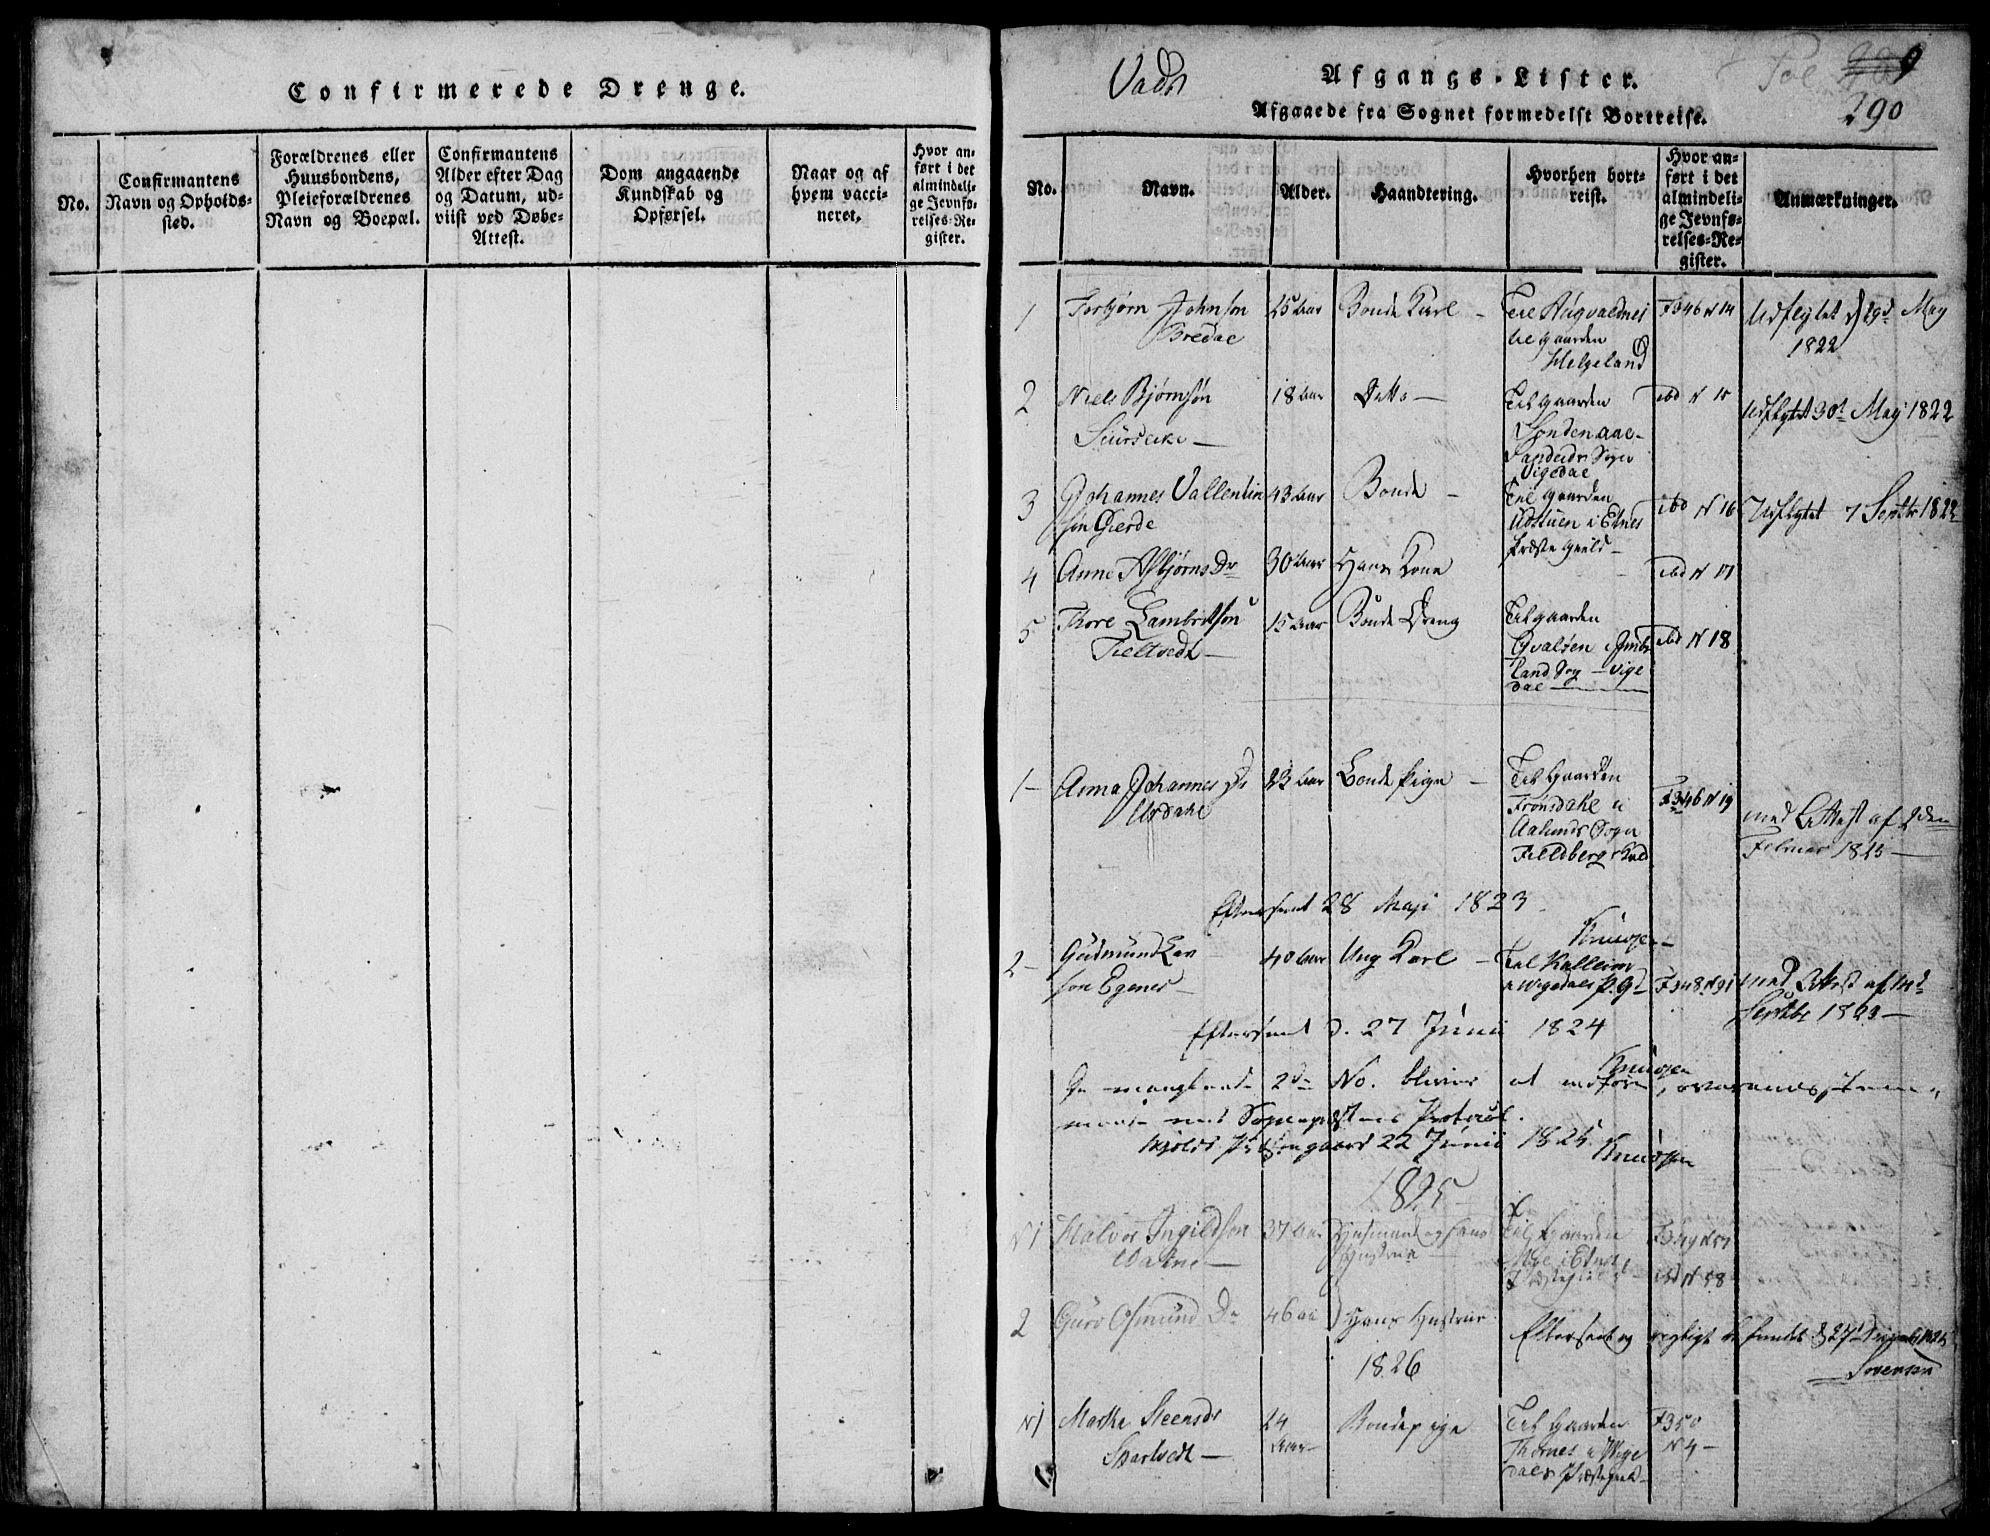 Confirmerede Drenge.
No.
Confirmantens
Navn og Opholds-
sted.
Forældrenes eller
Huusbondens,
Pleieforældrenes
Navn og Boepæl.
Confirmantens
Alder efter Dag
og Datum, ud-
viist ved Døbe-
Attest.
Dom angaaende
Kundskab og
Opførsel.
Naar og af
hvem vacci-
neret.
Hvor an-
ført i det
almindeli-
ge Jevnfø-
relses-Re-
gister.
Vads
Afgangs-Lister.
Fol
290
Afgaaede fra Sognet formedelst Bortreise.
No.
Navn.
Alder.
Haandtering.
Hvorhen bort-
reist.
Hvor an-
ført i det
almindeli-
ge Jevnfø-
relses-Re-
gister.
Anmærkninger.
1
Torbjørn Johnson
Bredal
25 Aar
Bonde Karl
Til Augvaldnes
gaarden
Helgeland
F 346 N 14
Udflytet d 29d May
1822
2
Niels Bjørnsøn
18 Aar
Ditto
Til gaarden
Søndenaae
Sandeids Sogn
Vigedal
ibd N 15
Udflytet 30t May 1822
3
Johannes Vallentin
søn Gjerde
43 Aar
Bonde
Til gaarden
Udstuen i Etnes
Præstegield
ibd N 16
Udflytet 7 Septbr 1822
4
Anne Asbjørns Dr
30 Aar
Hans Kone
ibd N 17
5
Thore Lambretsøn
Tieltvedt
15 Aar
Bonde Dreng
Til gaarden
i Imbs
land Sog Vige
dal
ibd N 18
1
Anna Johannes Dr
Urdahl
23 Aar
Bonde Pige
Til Gaarden
Frønsdahl i
Aalunds Sogn
F 346 N 19
med Attest af
Februar 1823
Efterseet 28 Maji 1823
Knudsen
2
Gudmund
søn Egenes
40 Aar
Ung Karl
Til Kalleim
i Wigedals P.G
F 348 N 91
med Attest af
Septbr 1823
Efterseet d. 27 Junii 1824
Knudsen
De manglende 2de No. bliver at indføre, overeenstem-
mende med Sognepræstens Protocol.
Skjolds Præstegaard 22 Junii 1825
Knudsen
1825
N 1
Halvor Ingildson
37 Aar
Huusmand og hans
Hustrue
Til Gaarden
i Etnes
Præstegield
F 349 N 57
ibd N 58
2
Guro Osmund Dr
46 Aa
Hans Hustrue
Efterseet og rigtigt befundet d 27
Sorensen
1826
N 1
Marthe Steensdr
24
Aar
Bondepige
Til Gaarden
Thornes i Wige
dals Præstegield
F 350
N 4